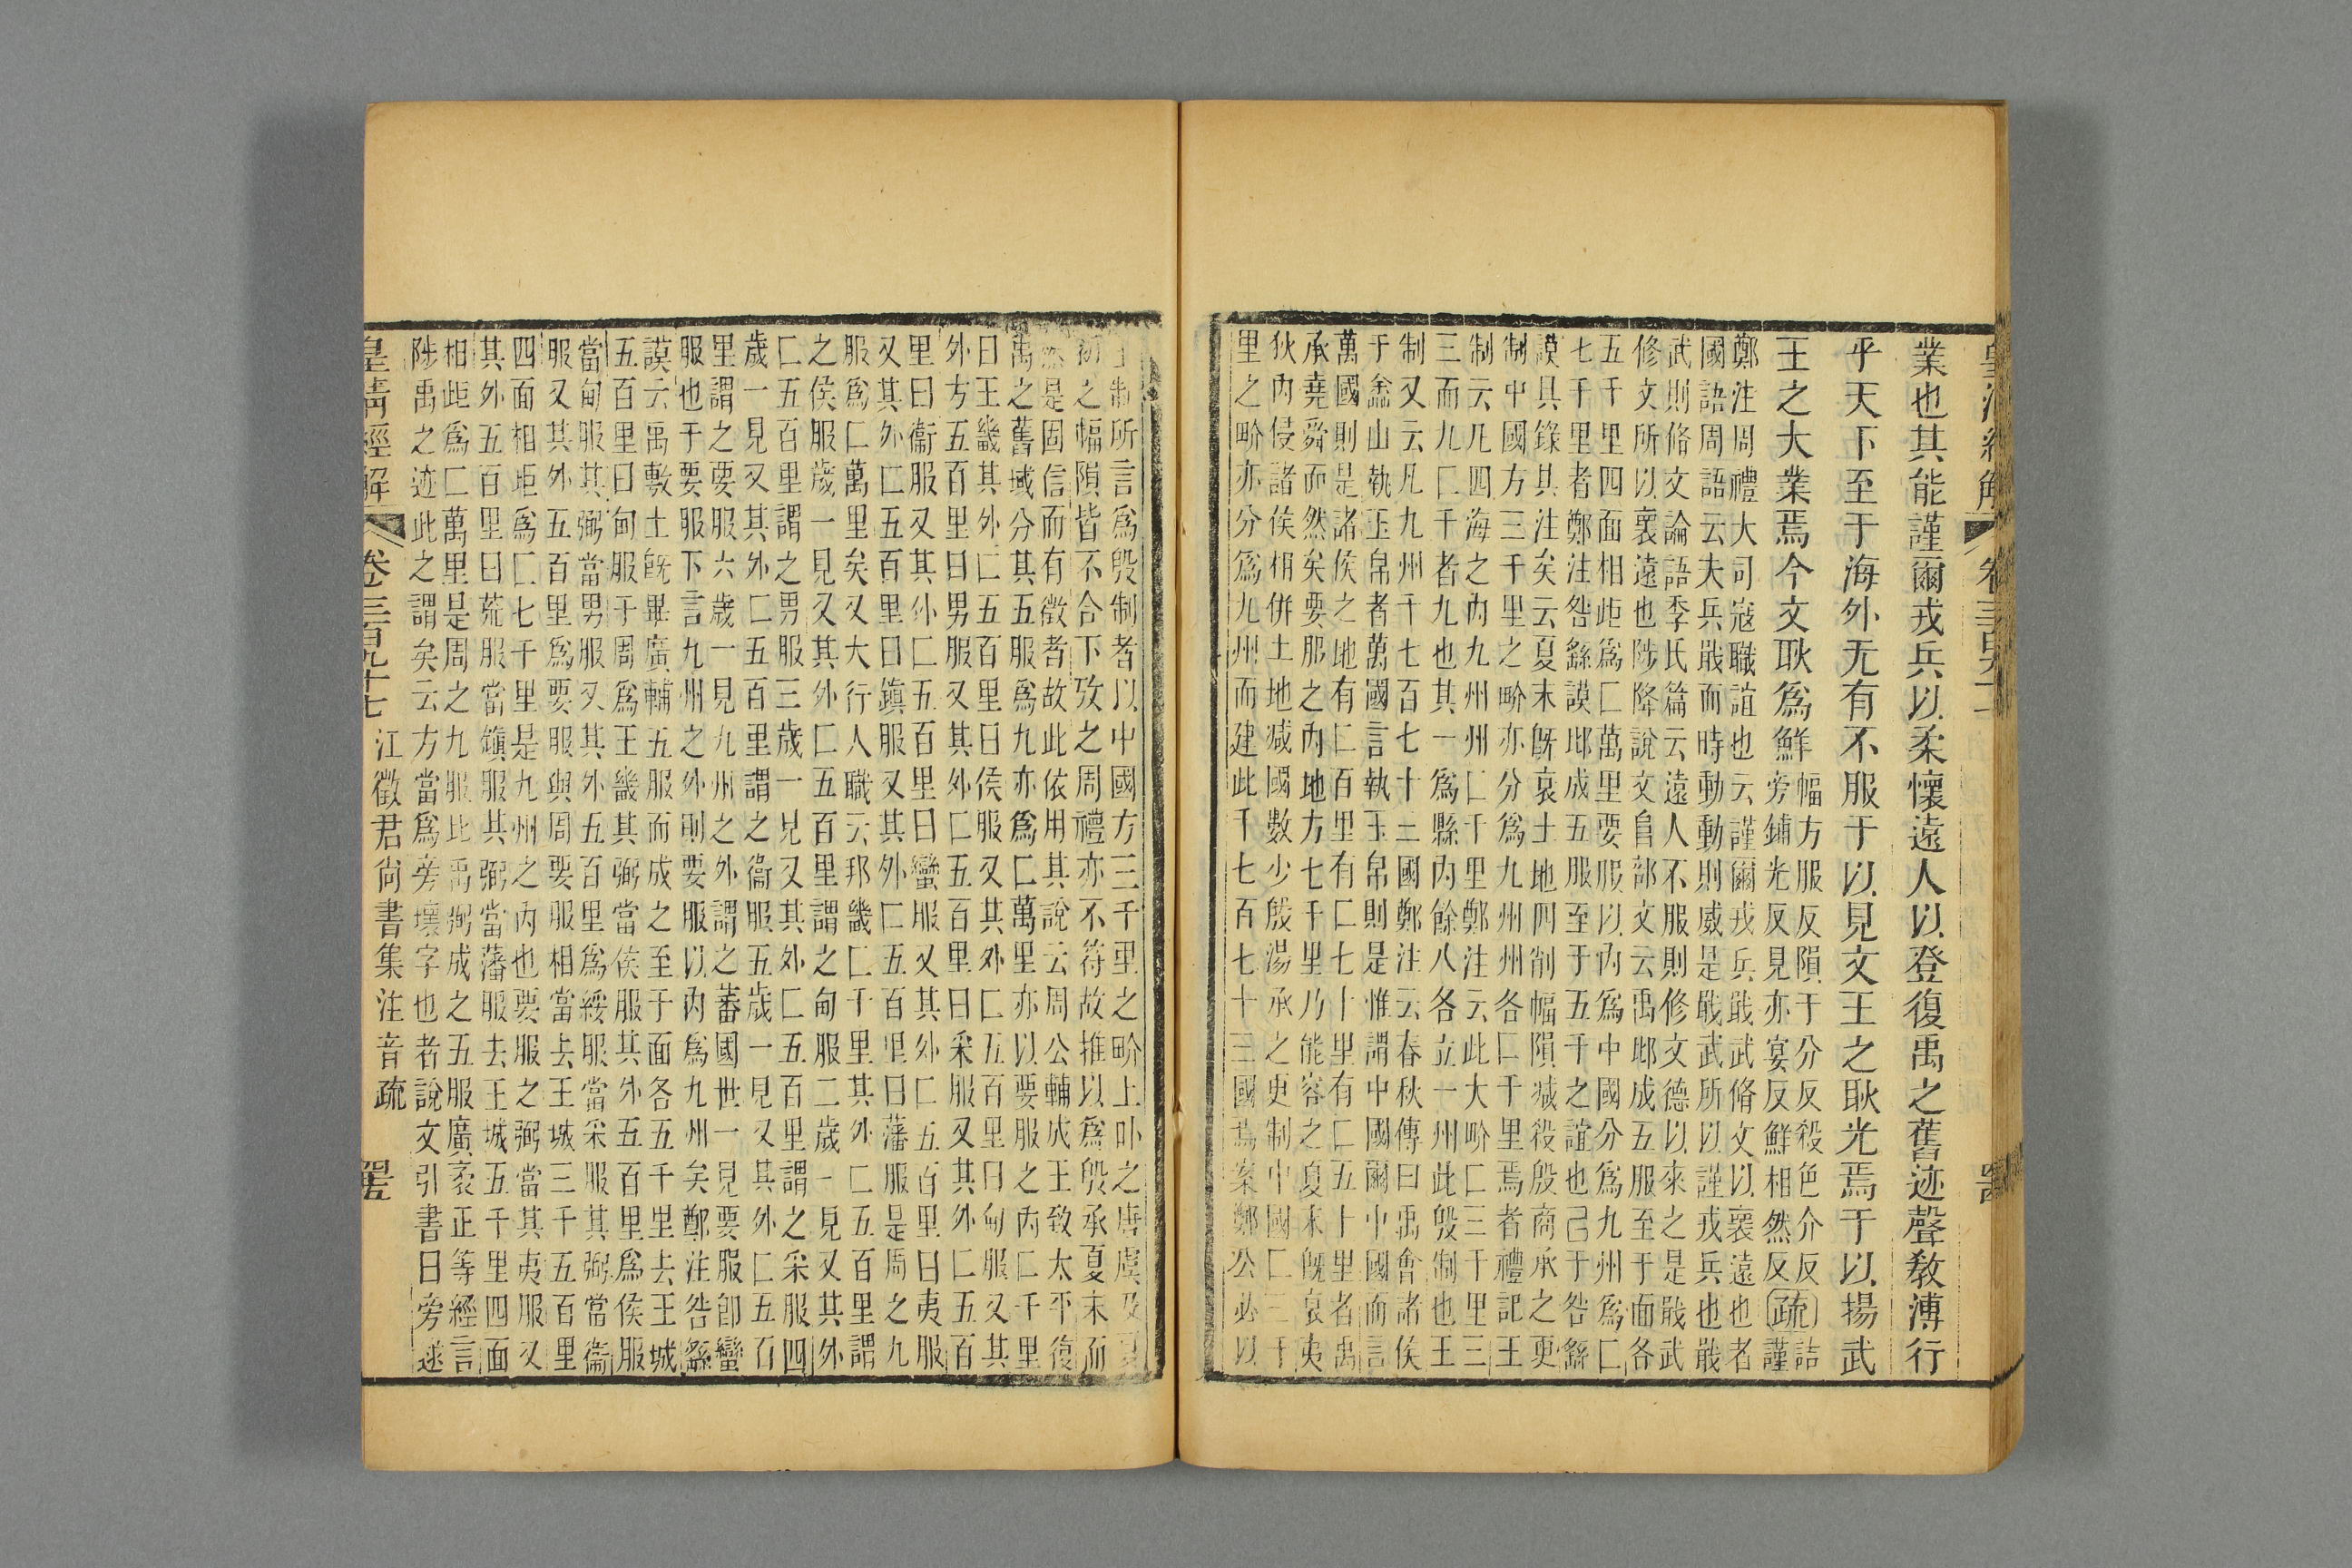 業也其能謹爾戎兵以柔懷遠人以登復禹之舊迹聲敎溥行
乎天下至于海外无有不服于以見文王之耿光焉于以揚武
王之大業焉今文耿爲鮮
幅方服反隕于分反殺色介反詰
旁鋪光反見亦宴反鮮相然反疏謹
鄭注周禮大司寇職誼也云謹爾戎兵戢武脩文以褱遠也者
國語周語云夫兵戢而時動動則威是戢武所以謹戎兵也戢
武則脩文論語季氏篇云遠人不服則修文德以來之是戢武
修文所以褱遠也陟降說文𨸏部文云禹邶成五服至于面各
五千里四面相距爲匚萬里要服以内爲中國分爲九州爲匚
七千里者鄭注咎繇謨邶成五服至于五千之誼也己于咎繇
謨具錄其注矣云夏末旣衰土地四削幅隕減殺殷商承之更
制中國方三千里之畍亦分爲九州州各匚千里焉者禮記王
制云凡四海之内九州州匚千里鄭注云此大畍匚三千里三
三而九匚千者九也其一爲縣内餘八各立一州此殷制也王
制又云凡九州千七百七十三國鄭注云春秋傳曰禹會諸侯
于嵞山執玉帛者萬國言執玉帛則是惟謂中國爾中國而言
萬國則是諸侯之地有匚百里有匚七十里有匚五十里者禹
承堯舜而然矣要服之内地方七千里乃能容之夏末旣衰夷
狄内侵諸侯相併土地減國數少殷湯承之更制中國匚三千
里之畍亦分爲九州而建此千七百七十三國焉案鄭公必以
王制所言爲殷制者以中國方三千里之畍上卟之唐虞及夏
初之幅隕皆不合下攷之周禮亦不符故推以爲殷承夏末而
然是固信而有徵者故此依用其說云周公輔成王致太平復
禹之舊域分其五服爲九亦爲匚萬里亦以要服之内匚千里
曰王畿其外匚五百里曰侯服又其外匚五百里曰甸服又其
外方五百里曰男服又其外匚五百里曰采服又其外匚五百
里曰衞服又其外匚五百里曰蠻服又其外匚五百里曰夷服
又其外匚五百里曰鎮服又其外匚五百里曰藩服是周之九
服爲匚萬里矣又大行人職云邦畿匚千里其外匚五百里謂
之侯服歲一見又其外匚五百里謂之甸服二歲一見又其外
匚五百里謂之男服三歲一見又其外匚五百里謂之采服四
歲一見又其外匚五百里謂之衞服五歲一見又其外匚五百
里謂之要服六歲一見九州之外謂之蕃國世一見要服卽蠻
服也于要服下言九州之外則要服以内爲九州矣鄭注咎繇
謨云禹敷土旣畢廣輔五服而成之至于面各五千里去王城
五百里曰甸服于周爲王畿其弼當侯服其外五百里爲侯服
當甸服其弼當男服又其外五百里爲綏服當采服其弼當衞
服又其外五百里爲要服與周要服相當去王城三千五百里
四面相距爲匚七千里是九州之内也要服之弼當其夷服又
其外五百里曰荒服當鎭服其弼當藩服去王城五千里四面
相距爲匚萬里是周之九服比禹弼成之五服廣袤正等經言
陟禹之迹此之謂矣云方當爲旁壞字也者說文引書曰旁逑
皇淸經解 卷三百九十七 江徵君尙書集注音疏